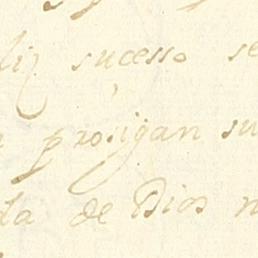 liz sucesso se
prosigan su
da de Dios n